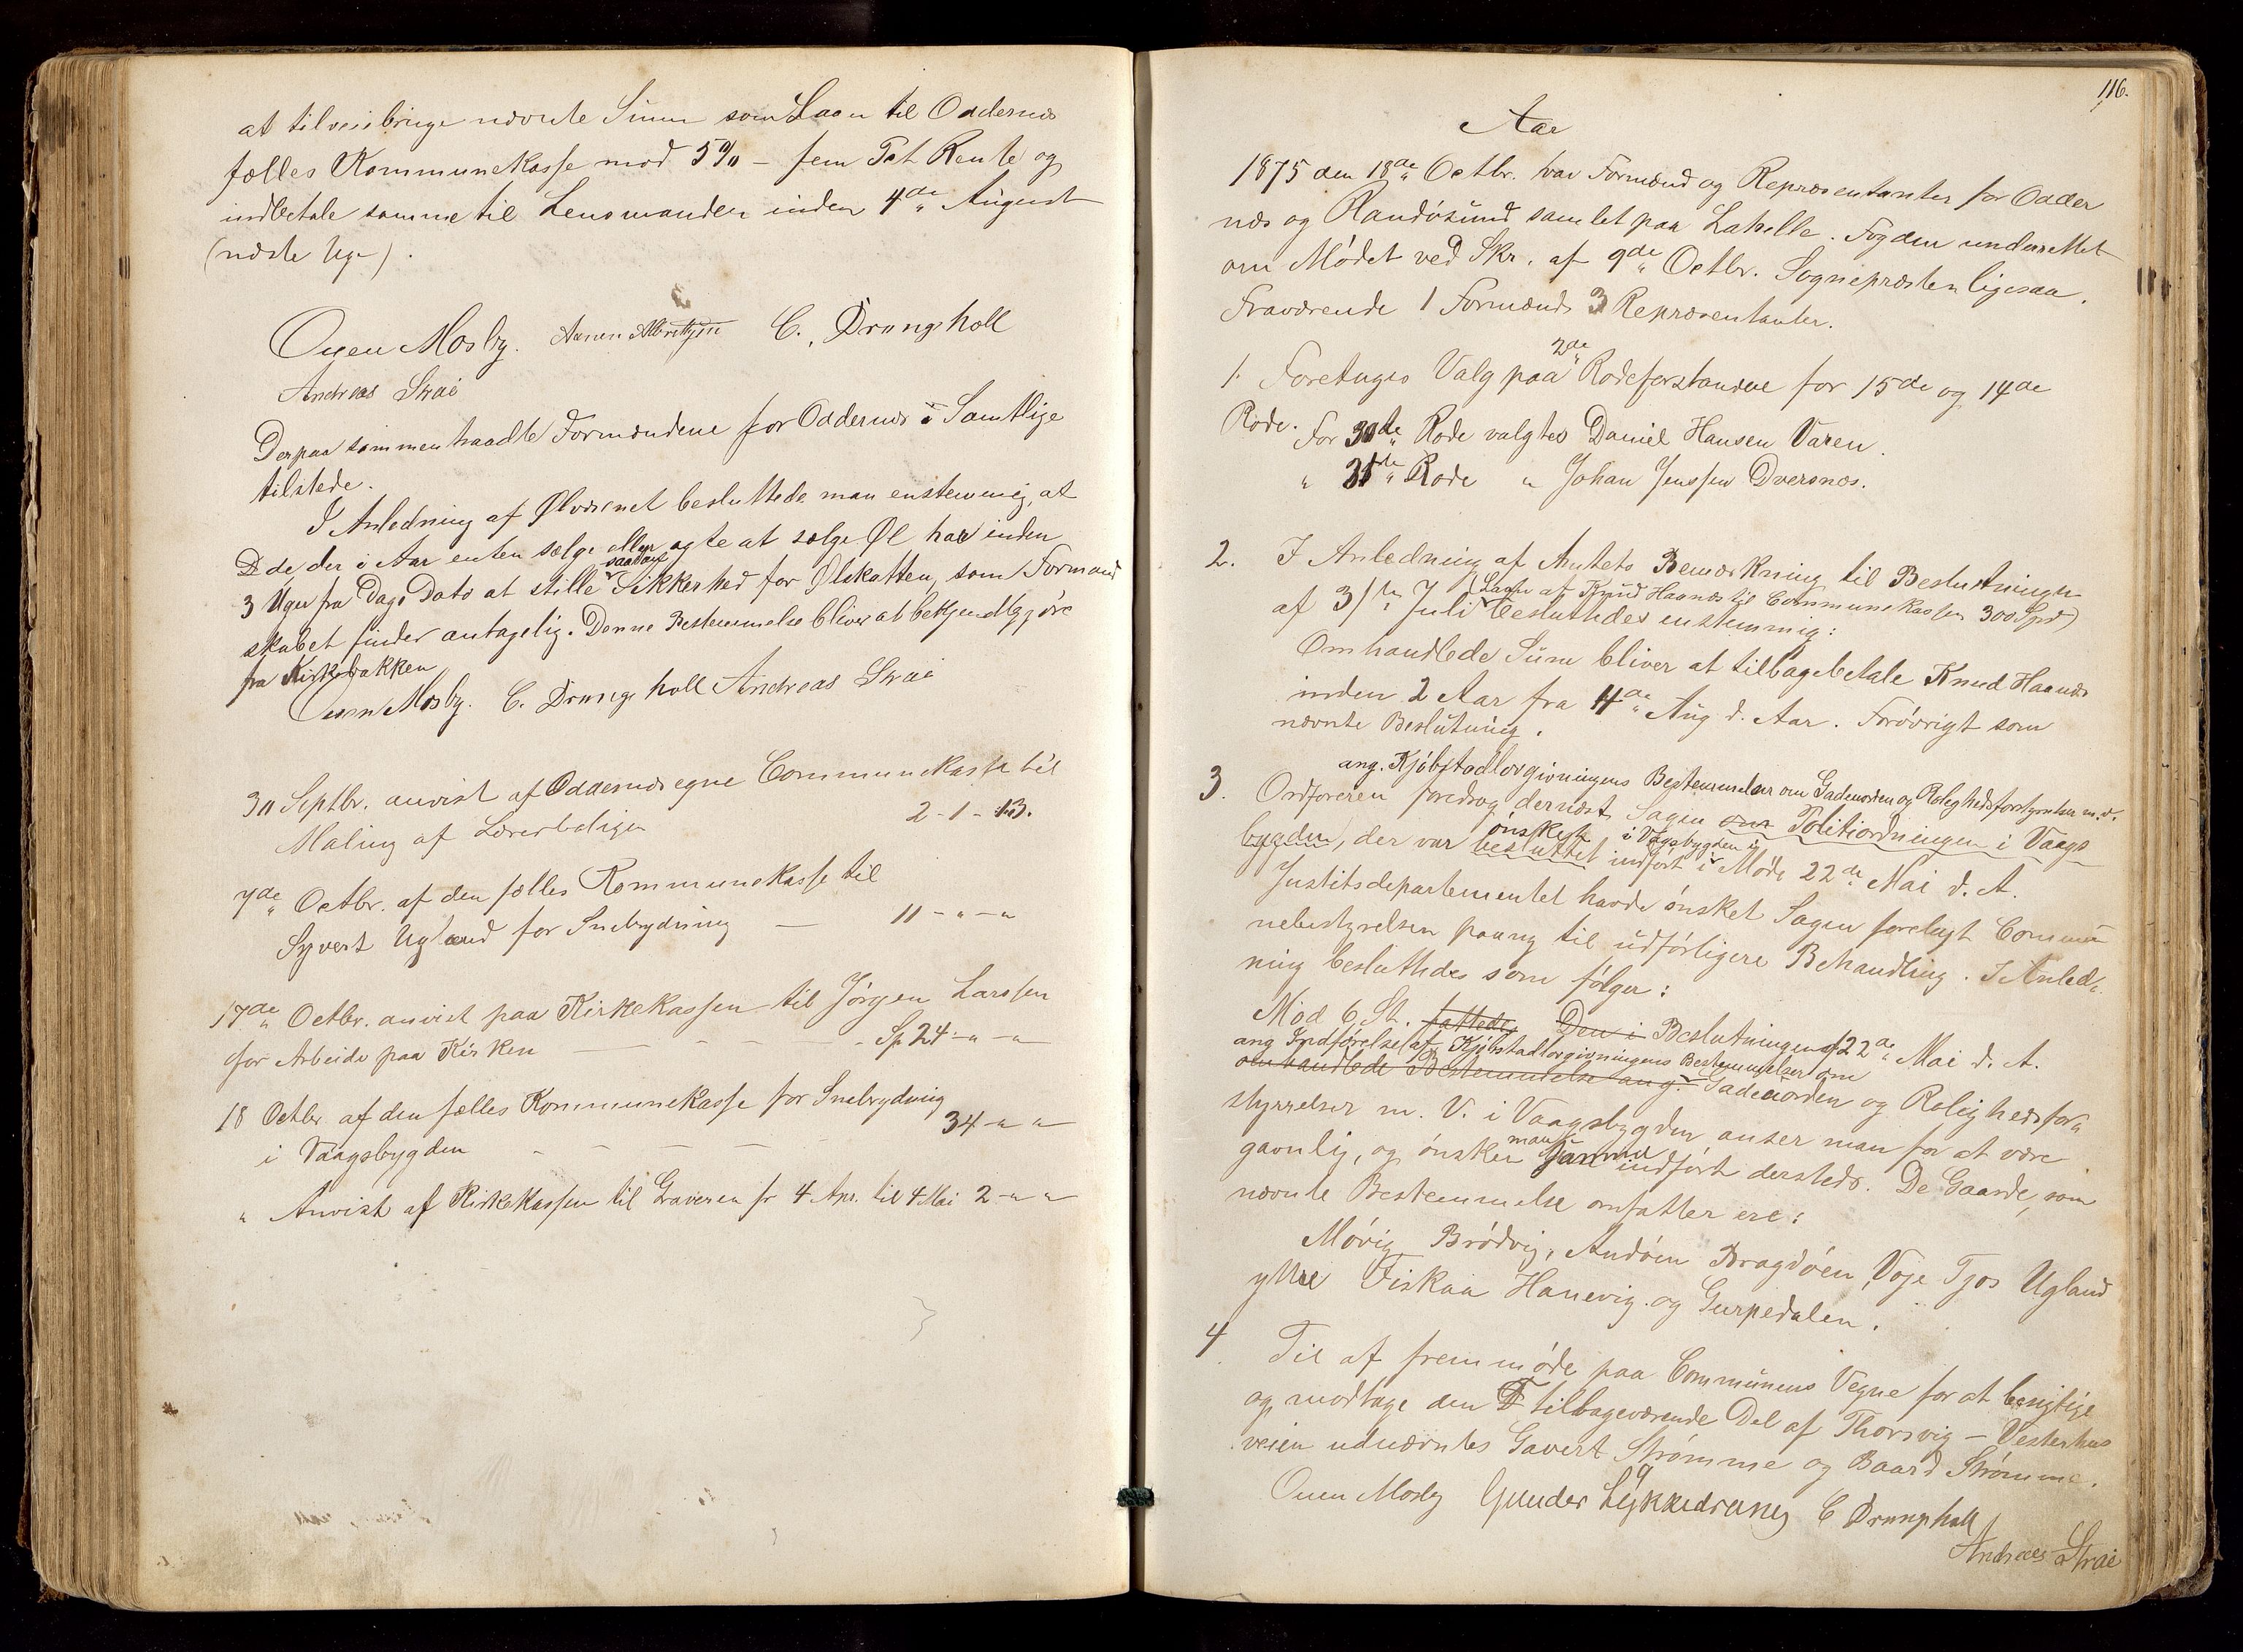 at tilveiebringe nævnte Sum som Laan til Oddernes
fælles Kommunekasse mod 5% – fem Pct Rente og
indbetale samme til Lensmanden inden 4de August
(næste Uge).
Ouen Mosby. C. Drangsholl
Andreas Strai
Derpaa sammentraadte Formændene for Oddernes i Samtlige
tilstede.
I Anledning af Ølvæsenet besluttede man enstemmig, at
de der i Aar enten sælge eller agte at sælge Øl har inden
3 Uger fra Dags Dato at stille saadan Sikkerhed for Ølskatten, som Formand
skabet finder antagelig. Denne Bestemmelse bliver at bekjendtgjøre
fra Kirkebakken
Ouen Mosby. C. Drangsholl Andreas Strai
30 Septbr. anvist af Oddernes egne Communekasse til
Maling af Lærerboligen 2 - 1 - 13.
7de Octbr. af den fælles Kommunekasse til
Syvert Ugland for Snebrydning — 11 - " - "
17de Octbr. anvist paa Kirkekassen til Jørgen Larssen
for Arbeide paa Kirken — — — - Sp 24 - " - "
18 Octbr. af den fælles Kommunekasse for Snebrydning
i Vaagsbygden - — — — 34 - " - "
" Anvist af Kirkekassen til Graveren fr 4 Apr. til 4 Mai 2 - " - "
116.
Aar
1875 den 18de Octbr. var Formænd og Repræsentanter for Odder
nes og Randøsund samlet paa Lahelle. Fogden underrettet
om Mødet ved Skr. af 9de Octbr. Sognepræsten ligesaa.
Fraværende 1 Formænd 3 Repræsentanter.
1. Foretoges Valg paa 2de Rodeforstandere for 15de og 14de
Rode.
For 30te Rode valgtes Daniel Hansen Varen.
" 31te Rode " Johan Jenssen Dversnes.
2. I Anledning af Amtets Bemærkning til Beslutningen
af 31te Juli (Laan af Knud Haanes til Communekassen 300 Spd)
besluttedes enstemmig:
Omhandlede Sum bliver at tilbagebetale Knud Haanes
inden 2 Aar fra 4de Aug d. Aar. Forøvrigt som
nævnte Beslutning.
ang. Kjøbstadlovgivningens Bestemmelser om Gadeorden og Rolighedsforstyrrelser m.v.
3. Ordføreren foredrog dernæst Sagen om Politiordningen i Vaags
bygden, der var besluttet ønsket indført i Vaagsbygden i Møde 22de Mai d. A.
Justitsdepartementet havde ønsket Sagen forelagt Commu-
nebestyrelsen paany til udførligere Behandling. I Anled-
ning besluttedes som følger:
Mod 6 St. fattedes Den i Beslutningen af 22de Mai d. A.
ang Indførelse af Kjøbstadlovgivningens Bestemmelser om
omhandlede Bestemmelse ang. Gadeorden og Rolighedsfor-
styrrelser m. V. i Vaagsbygden anser man for at være
gavnlig, og ønsker man samme indført dersteds. De Gaarde, som
nævnte Bestemmelse omfatter ere:
Møvig, Brødvig, Andøen Bragdøen, Voje Tjos Ugland
yttre Fiskaa Hanevig og Gurpedalen.
4. Til at fremmøde paa Communens Vegne for at besigtige
og modtage den tilbageværende Del af Thorsvig – Vesterhus
veien udnævntes Gavert Strømme og Baard Strømme.
Ouen Mosby Gunder Lykkedrang C Drangsholl
Andreas Strai